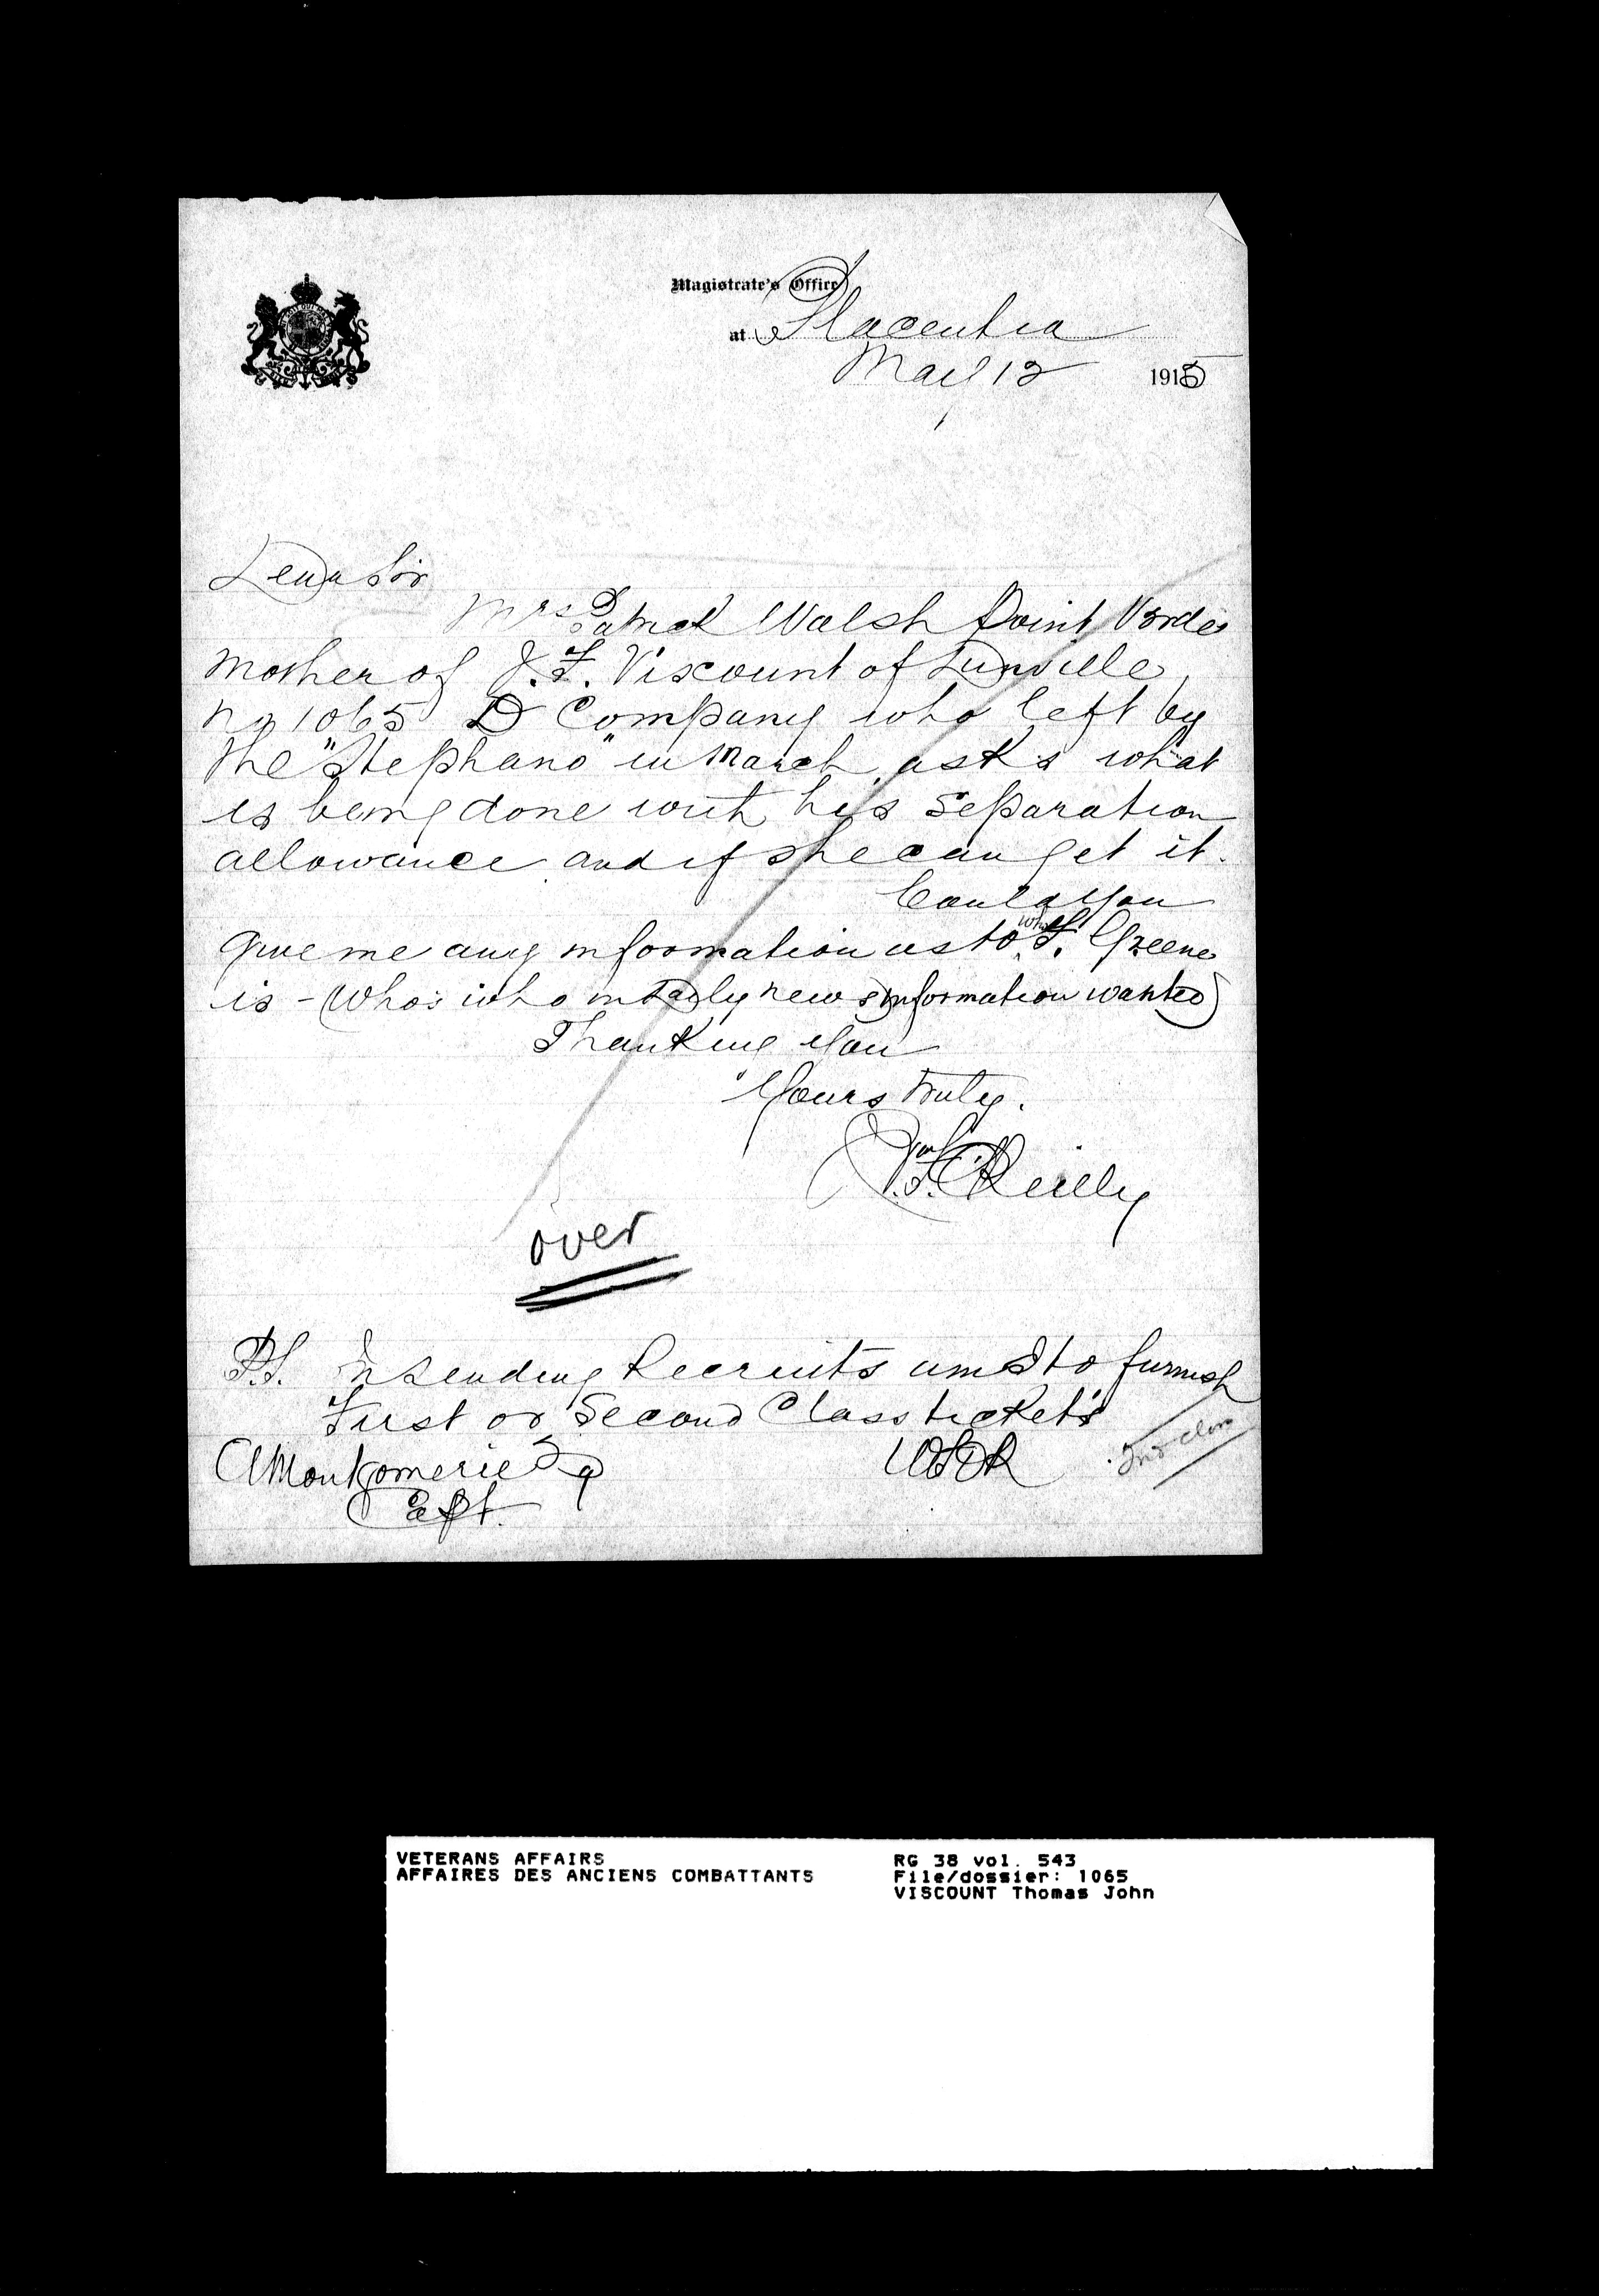 Magistrate's Office
at Placentia
May 12 1915
Dear Sir
Mrs Patrick Walsh Point Verde
Mother of J. F. Viscount of Dunville,
No 1065 D Company who left by
the "Stephano" in March, asks what
is being done with his Separation
allowance and if she can get it.
Could you
give me any information as to who F. Greene
is - (Who's who in Daily news information wanted)
Thanking you
Yours truly.
O'Reilly
over
P.S. In sending Recruits am I to furnish
First or Second Class tickets
A Montgomerie Esq
Capt.
2nd class
VETERANS AFFAIRS
AFFAIRES DES ANCIENS COMBATTANTS
RG 38 vol. 543
File/dossier: 1065
VISCOUNT Thomas John